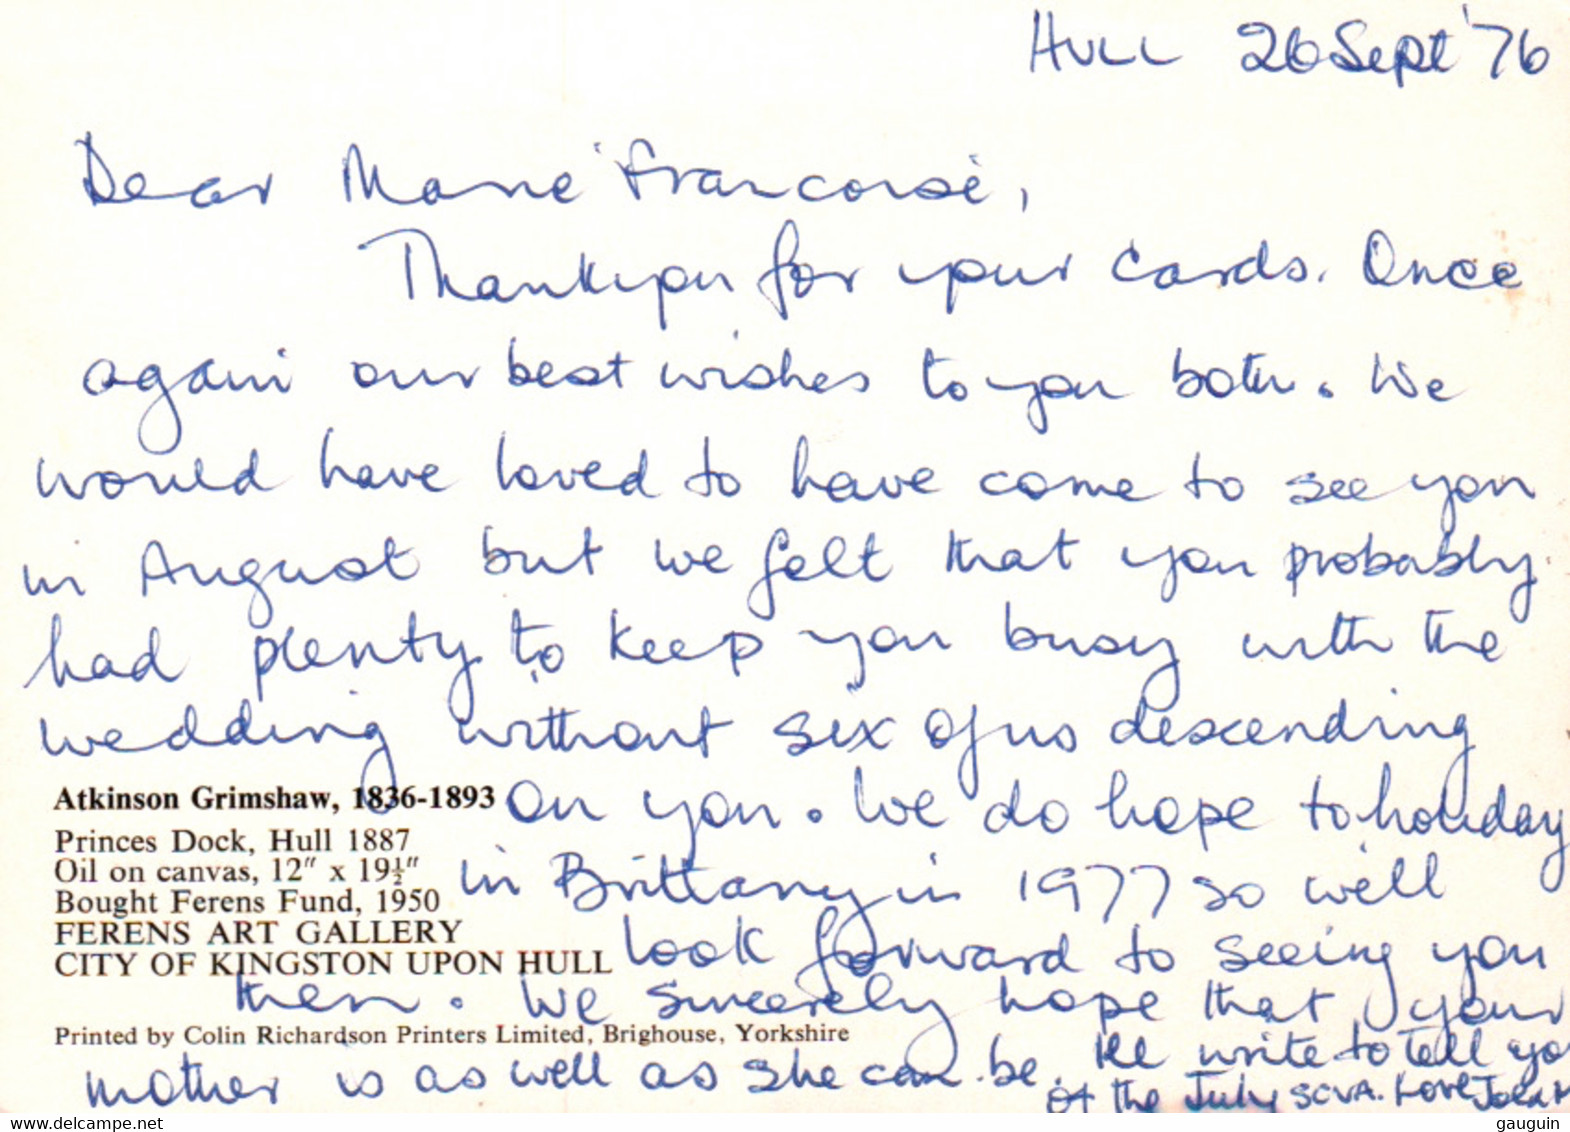 HULL 26 Sept '76
Dear Marie Francoise,
Thankyou for your cards. Once
again our best wishes to you both. We
would have loved to have come to see you
in August but we felt that you probably
had plenty to keep you busy with the
wedding without six of us descending
on you. We do hope to holiday
in Brittany in 1977 so we'll
look forward to seeing you
then. We sincerely hope that your
mother is as well as she can be. I'll write to tell you
of the July SCVA. Love
Atkinson Grimshaw, 1836-1893
Princes Dock, Hull 1887
Oil on canvas, 12" x 19½"
Bought Ferens Fund, 1950
FERENS ART GALLERY
CITY OF KINGSTON UPON HULL
Printed by Colin Richardson Printers Limited, Brighouse, Yorkshire
www.delcampe.net
gauguin